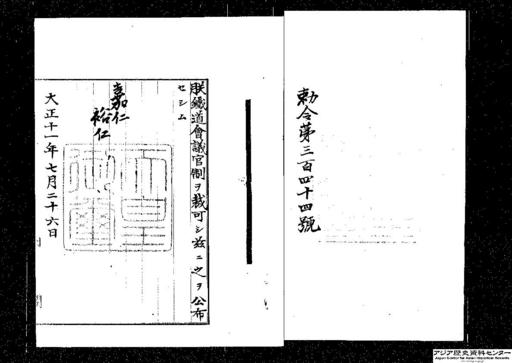 勅令第三百四十四號
朕鐵道會議官制ヲ裁可シ茲ニ之ヲ公布
セシム
嘉仁
裕仁
大正十一年七月二十六日
アジア歴史資料センター
Japan Center for Asian Historical Records